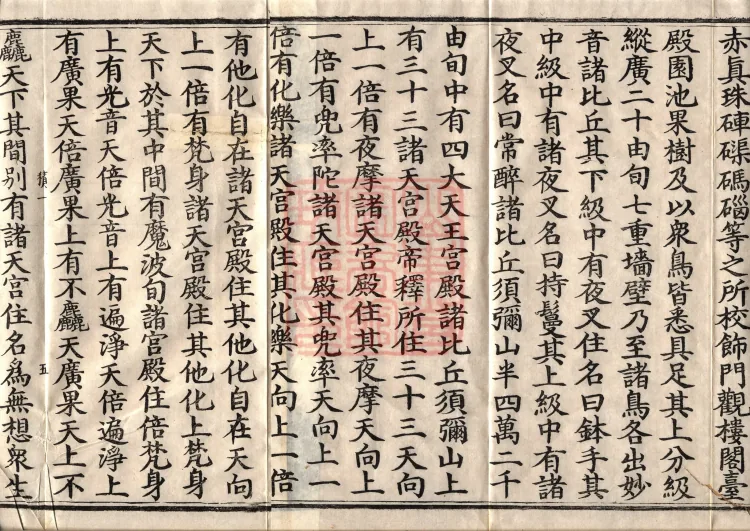 赤眞珠硨磲碼碯等之所校飾門觀樓閣臺
殿園池果樹及以衆鳥皆悉具足其上分級
縱廣二十由旬七重墻壁乃至諸鳥各出妙
音諸比丘其下級中有夜叉住名曰鉢手其
中級中有諸夜叉名曰持鬘其上級中有諸
夜叉名曰常醉諸比丘須彌山半四萬二千
由旬中有四大天王宮殿諸比丘須彌山上
有三十三諸天宮殿帝釋所住三十三天向
上一倍有夜摩諸天宮殿住其夜摩天向上
一倍有兜率陀諸天宮殿其兜率天向上一
倍有化樂諸天宮殿住其化樂天向上一倍
有他化自在諸天宮殿住其他化自在天向
上一倍有梵身諸天宮殿住其他化上梵身
天下於其中間有魔波旬諸宮殿住倍梵身
上有光音天倍光音上有遍淨天倍遍淨上
有廣果天倍廣果上有不麤天廣果天上不
一 五
麤天下其間別有諸天宮住名爲無想衆生